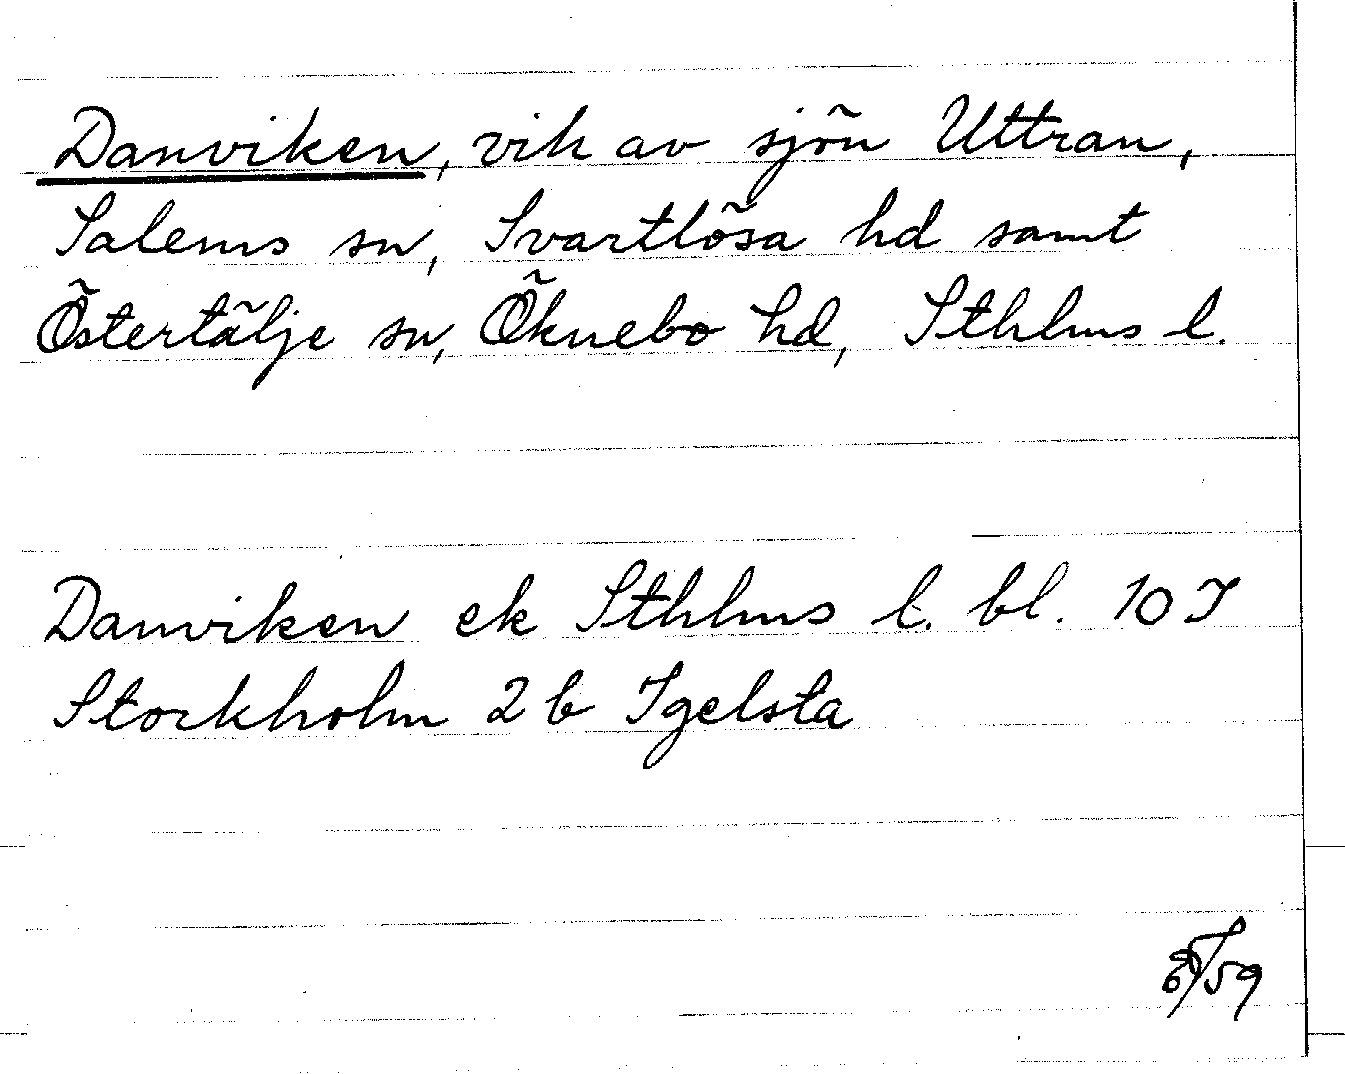 Danviken, vik av sjön Uttran,
Salems sn, Svartlösa hd samt
Östertälje sn, Öknebo hd, Sthlms l.
Danviken ek Sthlms l. bl. 10 I
Stockholm 2 b Igelsta